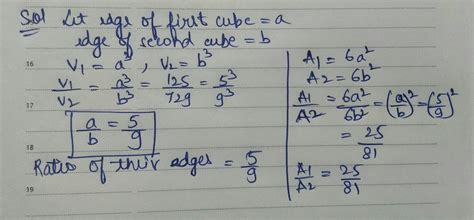 Sol Let edge of first cube = a
edge of second cube = b
16 V₁ = a³ , V₂ = b³
V₁/V₂ = a³/b³ = 125/729 = 5³/9³
17
a/b = 5/9
18
Ratio of their edges = 5/9
19
A₁ = 6a²
A2 = 6b²
A₁/A2 = 6a²/6b² = (a/b)² = (5/9)²
= 25/81
A₁/A2 = 25/81